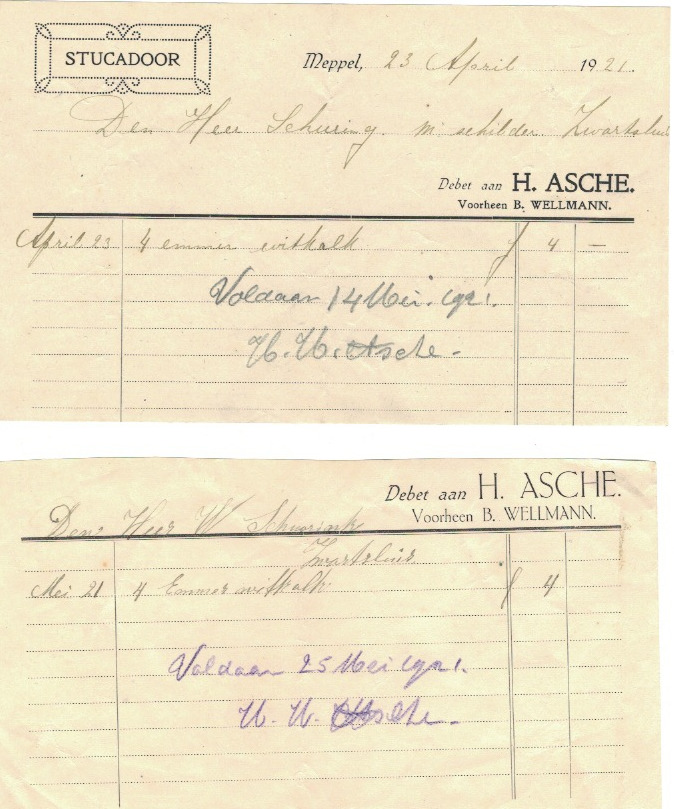 STUCADOOR
Meppel, 23 April 1921.
Den Heer Schuring. m schilder Zwartsluis
Debet aan H. ASCHE.
Voorheen B. WELLMANN.
April 23 4 emmer witkalk f 4 —
Voldaan 14 Mei. 1921.
H. H. Asche -
Debet aan H. ASCHE.
Voorheen B. WELLMANN.
Den Heer W Schuurink
Zwartsluis
Mei 21 4 Emmer witkalk f 4
Voldaan 25 Mei 1921.
H. H. Asche -